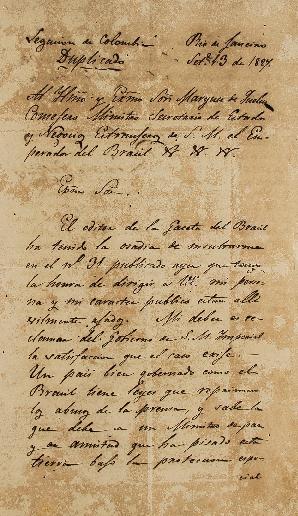 Legacion de Colombia Rio de Janeiro
Duplicado Set.e 13 de 1827.
Al Illmo y Exmo Sor Marques de
Ministro Secretario de Estado
y Negoc. Extrangeros de S. M. el Em-
perador del Brasil &. &. &.
Exmo Sor.
El editor de la Gaceta del Brasil
ha tenido la osadia de
en el nº 31 publicado ayer que tengo
la honra de dirigir a V.E. mi perso-
na y mi caracter publico estan alli
vilmente ajados. Mi deber es re-
clamar del Gobierno de S. M. Imperial
la satisfaccion que el caso exije.
Un pais bien gobernado como el
Brasil tiene leyes que repriman
los abusos de la prensa, y sabe lo
que debe a un Ministro de paz
y de amistad que ha pisado esta
tierra bajo la proteccion espe-
cial